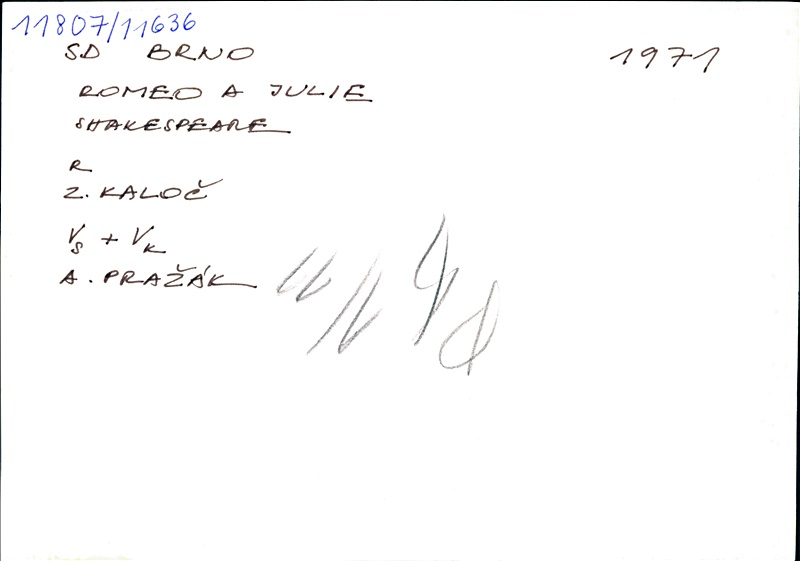 11807/11636
SD BRNO 1971
ROMEO A JULIE
SHAKESPEARE
R
Z. KALOČ
VS + VK
A. PRAŽÁK